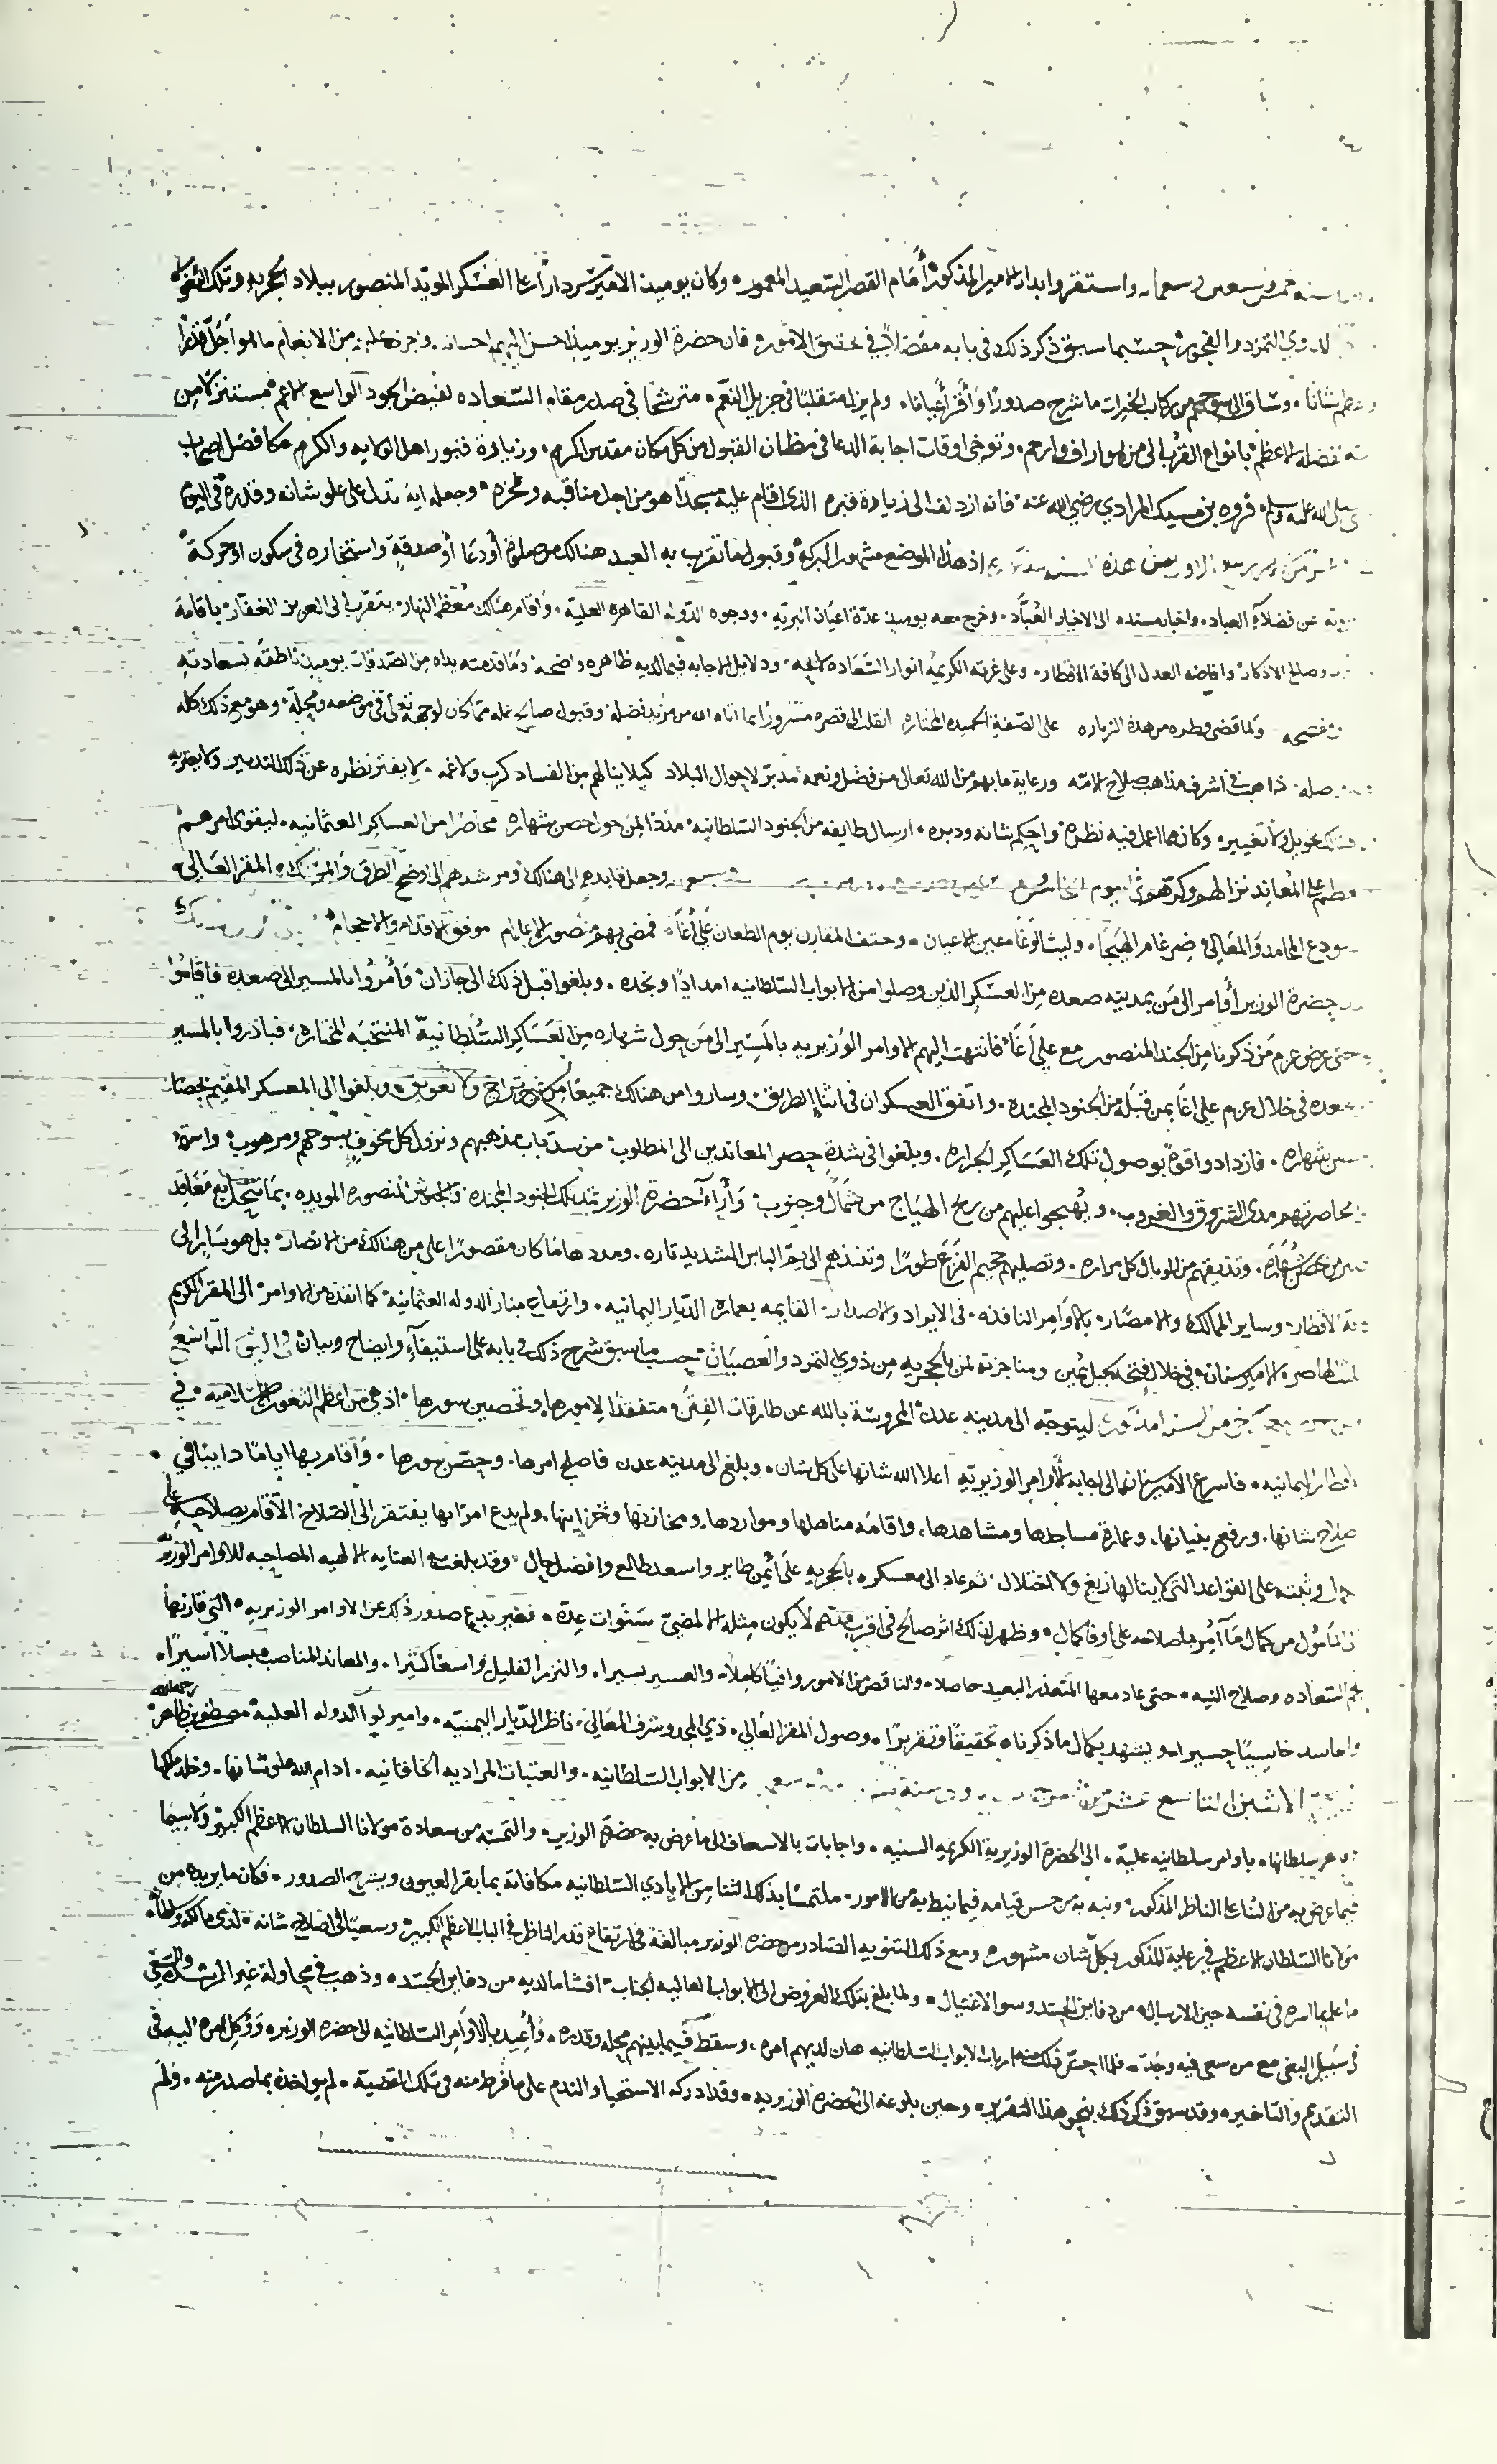 سنة خمس وسبعين وتسعمائه واستقروا بدار الامير المذكور أمام القصر السعيد المعمور وكان يوميذ الامير سردارًا على العسكر المويد المنصور ببلاد الحجريه وتلك الثغور
لذوي التمرد والفجور حسبما سبق ذكر ذلك في بابه مفصلاً في تحقيق الامور فان حضرة الوزير يوميذ احسن اليهم احسانه واجرى عليه من الانعام ما هو اجل قدرا
شانا وساق الى سوحهم من ركاب الخيرات ما شرح صدورًا وأقر أعيانا ولم يزل متقلبًا في جزيل النعم مترشحًا في صدر مقام السعاده لفيض الجود الواسع الاعم مستنزلا من
فضله الاعظم بانواع القرب الى من هو اراف وارحم وتوخى اوقات اجابة الدعا في مظان القبول من كل مكان مقدس اكرم وزيارة قبور اهل الولايه والكرم
صلى الله عليه وسلم فروه بن مسيك المرادي رضي الله عنه فانه ازدلف الى زيارة قبره الذي اقام عليه مسجدًا هو من اجل مناقبه وفخره وجعله اية تدل على علو شانه وقدره في اليوم
ربيع الاول من هذه السنه اذ هذا الموضع مشهور البركة وقبول ما تقرب به العبد هنالك من صلوة أو دعا أو صدقة واستخاره في سكون او حركة
عن فضلاء العباد واخبار مسنده الى الاخيار العباد وخرج معه يوميذ عدة اعيان البريه ووجوه الدوله القاهره العلية واقام هنالك معظم النهار يتقرب الى العزيز الغفار باقامة
وصالح الاذكار وافاضة العدل الى كافة الاقطار وعلى غرته الكريمه انوار السعاده لايحه ودلايل الاجابه فيما لديه ظاهره واضحه وما قدمته يداه من الصدقات يوميذ ناطقه بسعادته
ولما قضى وطره من هذه الزياره على الصفة الحميده المختاره انقلب الى قصره مسرورا بما اتاه الله من مزيد فضله وقبول صالح عمله مما كان لوجهه تعالى في موضعه ومحله وهو مع ذلك كله
ذاهب في اشرف مذاهب صلاح الامه ورعاية ما بهم من الله تعالى من فضل ونعمه مدبر لاحوال البلاد كيلا ينالهم من الفساد كرب ولا غمه لا يفتر نظره عن ذلك التدبير ولا يعتريه
تحويل ولا تغيير وكان مما اعمل فيه نظره واحكم شانه ودبره ارسال طايفه من الجنود السلطانيه مددًا لمن حول حصن شهاره محاصرا من العساكر العثمانيه ليقوى امرهم
على المعاند نزالهم وكرتهم في اليوم الخامس وجعل قايدهم الى هنالك ومرشدهم الى اوضح الطرق والمسالك المقر العالي
المحامد والمعالي ضرغام الهيجا وليث الوغا معين الاعيان وحتف المقارن يوم الطعان علي أغا فمضى بهم منصور الاعلام موفق الاقدام والاحجام
حضرة الوزير أوامر الى من بمدينه صعده من العسكر الذين وصلوا من الابواب السلطانيه امدادًا ونجده وبلغوا قبل ذلك الى جازان وأمروا بالمسير الى صعده فاقاموا
حتى عرض عزم من ذكرنا من الجند المنصور مع علي أغا فانتهت اليهم الاوامر الوزيريه بالمسير الى من حول شهاره من العساكر السلطانية المنتخبه المختاره فبادروا بالمسير
صعده في خلال عزم علي اغا بمن قبله من الجنود المجنده واتفق العسكران في اثنا الطريق وساروا من هنالك جميعًا من غير تراخ ولا تعويق وبلغوا الى المعسكر المقيم
شهاره فازدادوا قوة بوصول تلك العساكر الجراره وبلغوا في شدة حصر المعاندين الى المطلوب من سد باب مذهبهم ونزول كل مخوف بسوحهم ومرهوب
محاصرتهم مدى الشروق والغروب ويهيجوا عليهم من ريح الهياج من شمال وجنوب وأراء حضرة الوزير تمد تلك الجنود المجنده والجيوش المنصوره المويده بما تنحل به معاقد
من حصن شهاره وتذيقهم من الوبال كل مراره وتصليهم جحيم الفزع طورًا وتنبذهم الى يم الباس الشديد تاره ومددها ما كان مقصورًا على من هنالك من الانصار بل هو ساير الى
الاقطار وساير الممالك والامصار بالاوامر النافذه في الايراد والاصدار القايمه بعمارة الديار اليمانيه وارتفاع منار الدوله العثمانية كما انفذ من الاوامر الى المقر الكريم
الامير سنان في خلال فتحه بجبل ومناجزته لمن بالحجريه من ذوي التمرد والعصيان حسب ما سبق شرح ذلك في بابه على استيفاء وايضاح وبيان
ليتوجه الى مدينه عدن المحروسة بالله عن طارقات الفتن متفقدًا لامورها وتحصين سورها اذ هي من اعظم الثغور الاسلاميه في
الاقطار اليمانيه فاسرع الأمير سنان الى اجابة الأوامر الوزيريه اعلا الله شانها على كل شان وبلغ الى مدينه عدن فاصلح امرها وحصن سورها وأقام بها ايامًا دايبًا في
صلاح شانها ورفع بنيانها وعمارة مساجدها ومشاهدها واقامه مناهلها ومواردها ومخازنها وخزاينها ولم يدع امرًا بها يفتقر الى الصلاح الا قام بصلاحه على
وثبته على القواعد التي لا ينالها زيغ ولا اختلال ثم عاد الى معسكره بالحجريه على أيمن طاير واسعد طالع وافضل حال وقد بلغت به العنايه الالهيه المصاحبه للاوامر الوزيريه
المامول من كمال ما أمر باصلاحه على أوفا كمال وظهر لذلك اثر صالح في اقرب مدة لا يكون مثله الا لمضي سنوات عدة فغير بديع صدور ذلك عن الاوامر الوزيريه التي قارنها
السعاده وصلاح النيه حتى عاد معها المتعذر البعيد حاصلا والناقص من الامور وافيًا كاملا والعسير يسيرا والنزر القليل واسعًا كثيرا والمعاند المناصب اسيرًا
والحاسد خاسيًا حسيرا ويشهد بكمال ما ذكرناه تحقيقًا وتقريرًا وصول المقر العالي ذي المجد وشرف المعالي ناظر الديار اليمنيه وامير لوا الدوله العلية مصطفى
الاثنين التاسع عشر من من الابواب السلطانيه والعتبات المراديه الخاقانيه ادام الله علو شانها وخلد ملكها
سلطانها باوامر سلطانيه علية الى الحضرة الوزيرية الكريمه السنيه واجابات بالاسعاف الى ما عرض به حضرة الوزير والتمسه من سعادة مولانا السلطان الاعظم الكبير ولا سيما
فيما عرض به من الثنا على الناظر المذكور ونبه به من حسن قيامه فيما نيط به من الامور ملتمسًا بذلك الثنا من الايادي السلطانيه مكافاته بما يقر العيون ويشرح الصدور فكان ما يريده من
مولانا السلطان الاعظم في رعاية المذكور بكل شان مشهور ومع ذلك التنويه الصادر من حضرة الوزير مبالغة في ارتفاع قدر الناظر في الباب الاعظم الكبير وسعيًا في اصلاح شانه لدى مالكه
ما علم بما اسره في نفسه حين الارسال من دفاين الحسد وسو الاغتيال ولما بلغ بتلك العروض الى الابواب العاليه الجناب افشا ما لديه من دفاين الحسد وذهب في محاولة غير الرشد
في سبيل البغي مع من سعى فيه وجد فلما ارباب الابواب السلطانيه هان لديهم امره وسقط فيما بينهم محله وقدره وأعيد بالأوامر السلطانيه الى حضرة الوزير ووكل امره اليه في
التقديم والتاخير وقد سبق ذكر ذلك بنحو هذا التقرير وحين بلوغه الى الحضرة الوزيريه وقد ادركه الاستحيا والندم على ما فرط منه في تلك القضية لم يواخذه بما صدر منه ولم